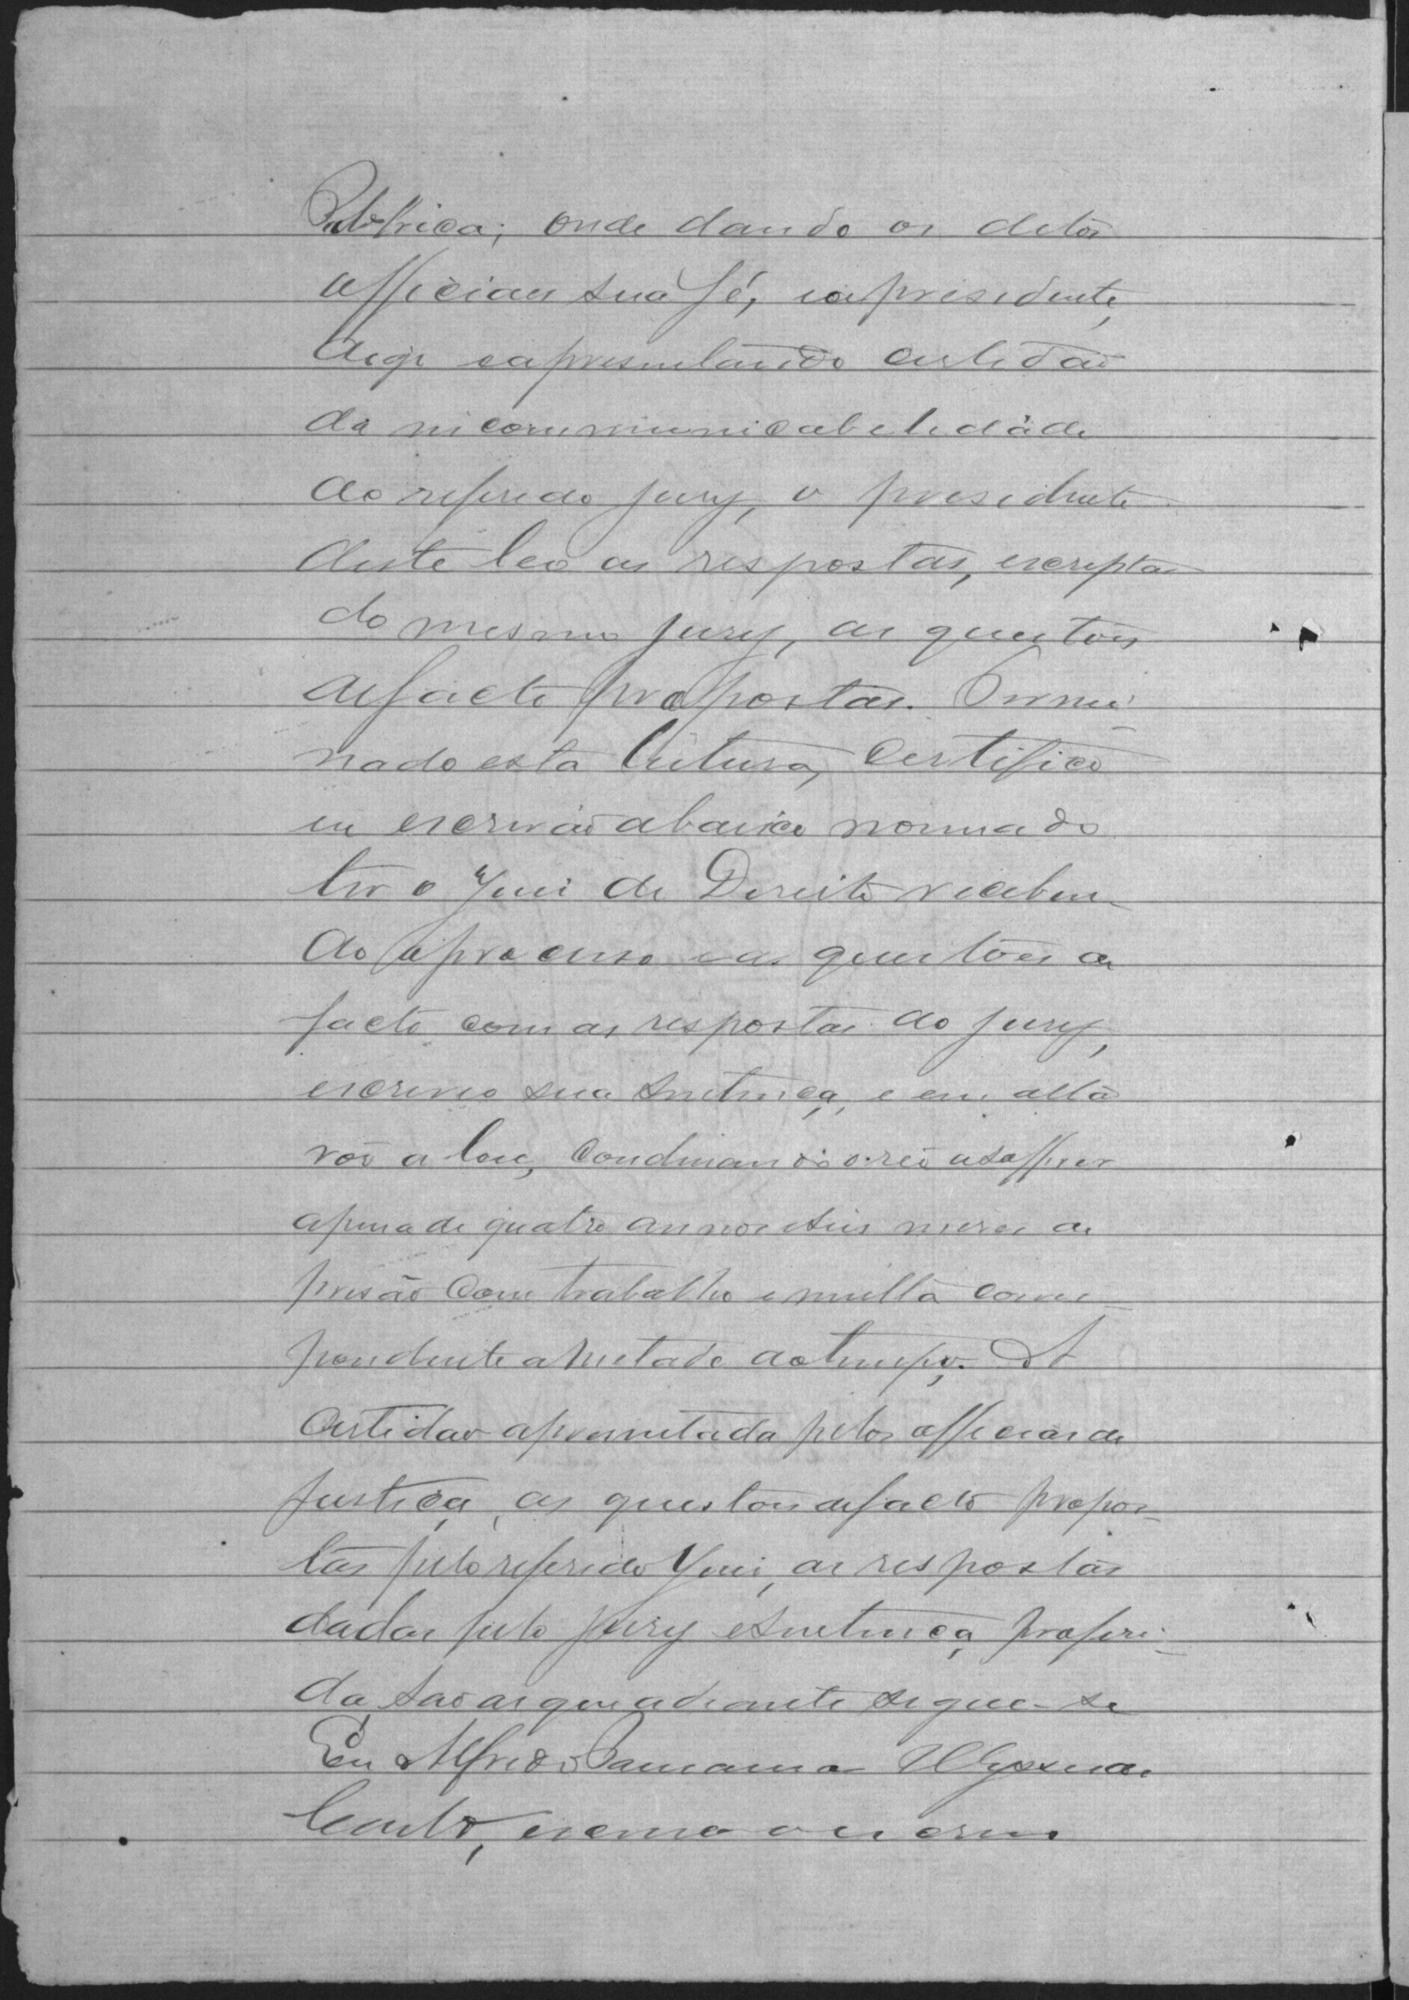 Publica; onde dando os ditos
officiaes sua fé, e o presidente,
digo e apresentando certidão
da incommunicabilidade
do referido jury, o presidente
deste leo as respostas, escriptas
do mesmo jury, as questões
de facto propostas. Termi-
nado esta leitura, certifico
eu escrivão abaixo nomeado
ter o Juiz de Direito receben-
do o processo e as questões de
facto com as respostas do jury,
escreveo sua sentença, e em alta
voz a leu, condenando o reo a soffrer
a pena de quatro annos e seis mezes de
prisão com trabalho e multa corres-
pondente a metade do tempo. A
certidão apresentada pelos officiaes de
justiça, as questões de facto propos-
tas pelo referido Juiz, as respostas
dadas pelo jury e sentença proferi-
da, são as que adiante segue-se
Eu Alfredo
escrivão o escrevi